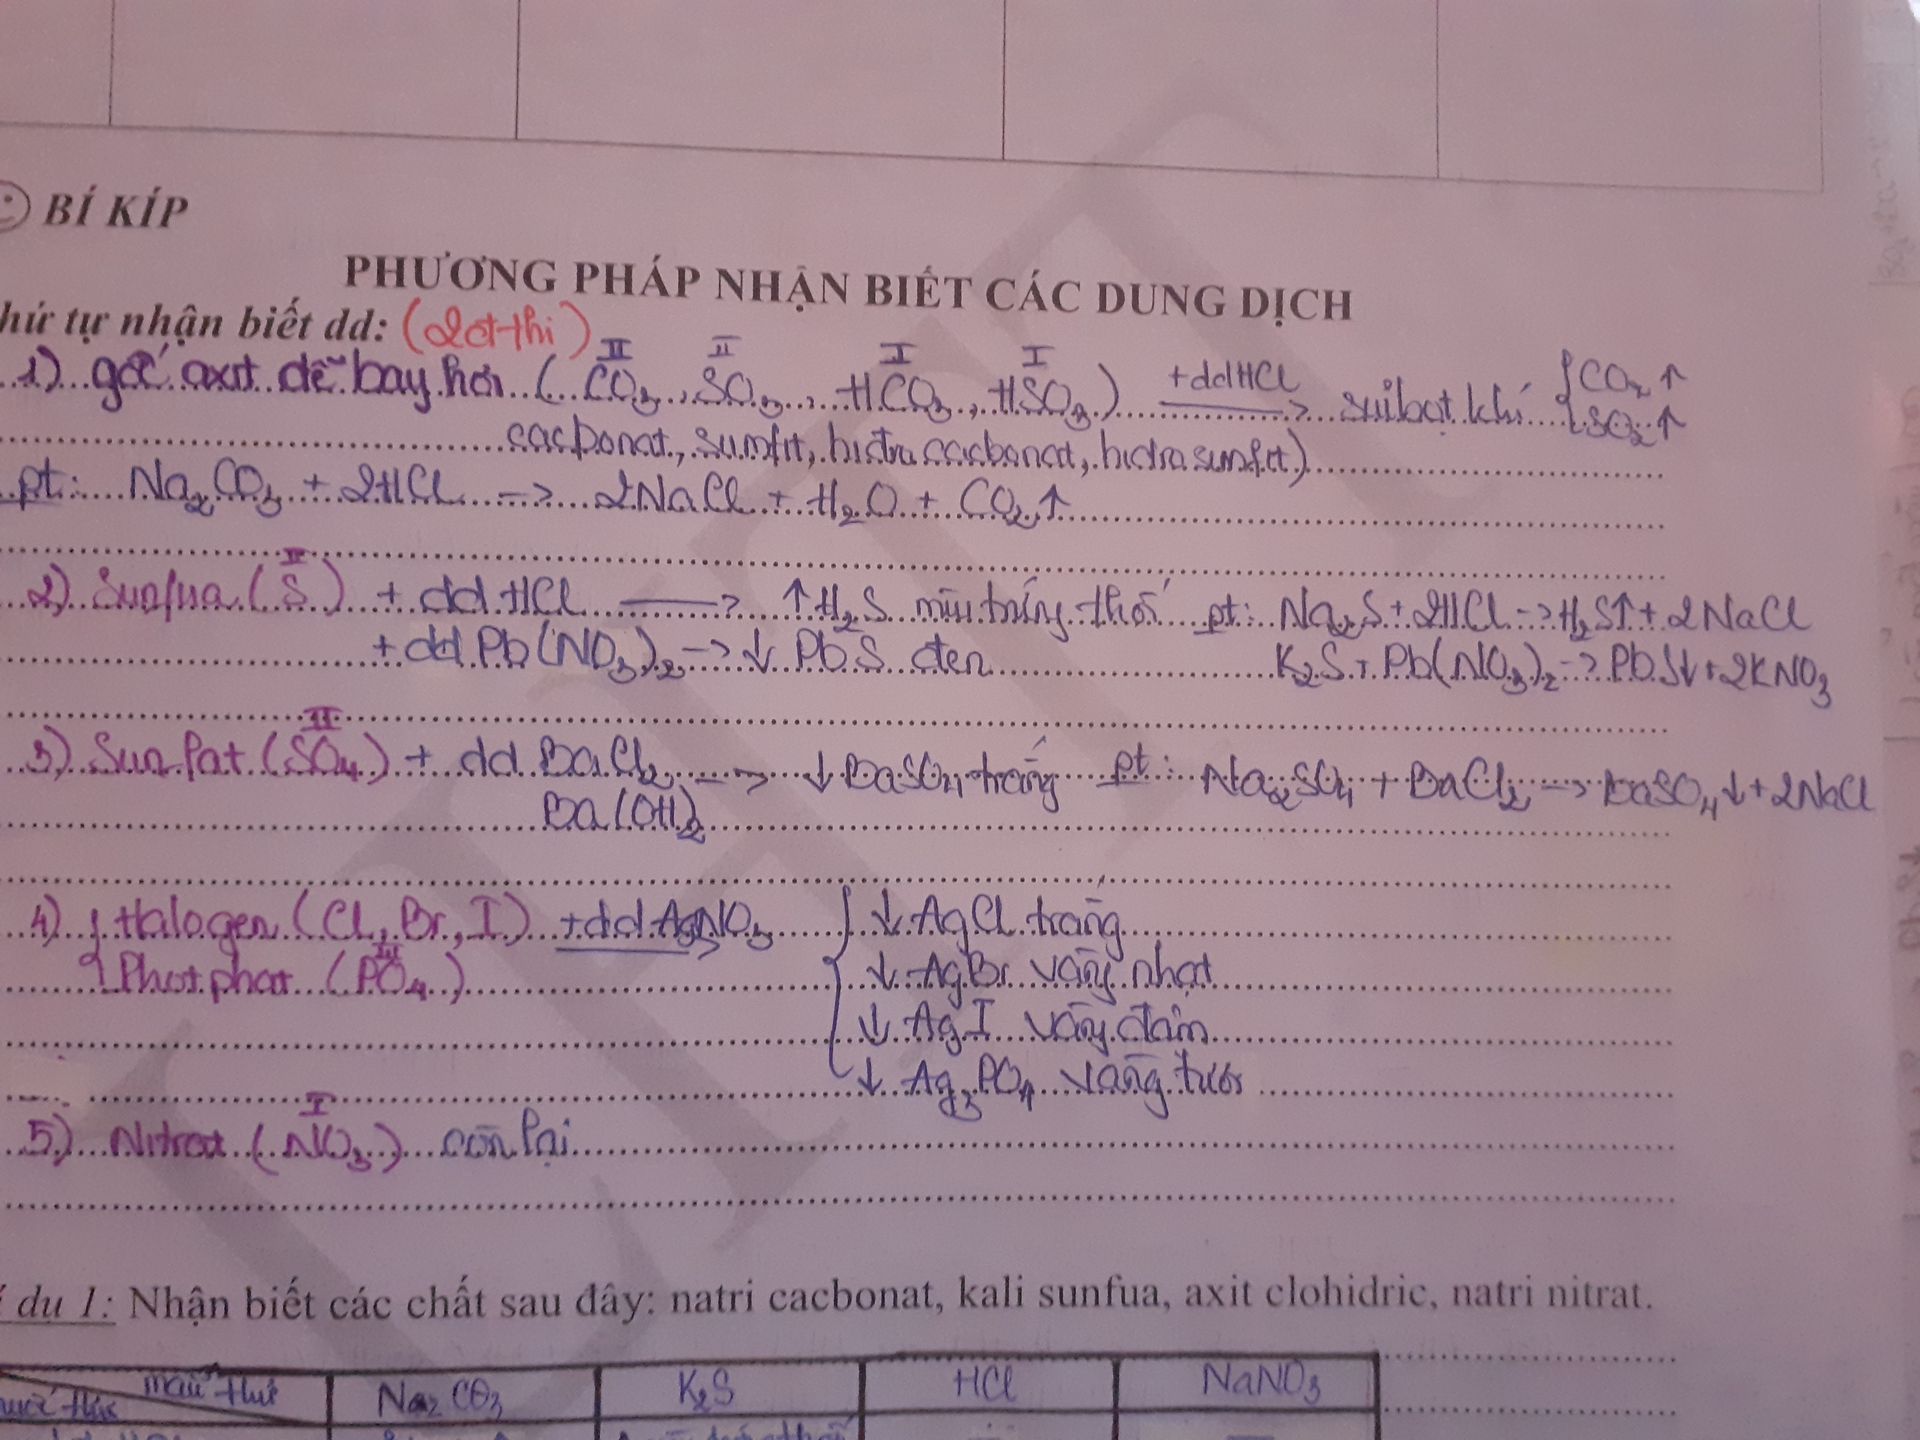 BÍ KÍP
PHƯƠNG PHÁP NHẬN BIẾT CÁC DUNG DỊCH
hứ tự nhận biết dd: (2đ thi)
1) gốc axit dễ bay hơi ( CO₃, SO₃, HCO₃, HSO₃ ) +ddHCl → sủi bọt khí { CO₂ ↑
II II I I SO₂ ↑
cacbonat, sunfit, hiđrocacbonat, hidrosunfit)
pt: Na₂CO₃ + 2HCl → 2NaCl + H₂O + CO₂ ↑
2) Sunfua ( S ) + dd HCl → ↑ H₂S mùi trứng thối pt: Na₂S + 2HCl → H₂S↑ + 2NaCl
II
+ dd Pb(NO₃)₂ → ↓ PbS đen K₂S + Pb(NO₃)₂ → PbS↓ + 2KNO₃
3) Sunfat (SO₄) + dd BaCl₂ → ↓ BaSO₄ trắng pt: Na₂SO₄ + BaCl₂ → BaSO₄↓ + 2NaCl
II
Ba(OH)₂
4) { Halogen (Cl, Br, I) +dd AgNO₃ → { ↓ AgCl trắng
Photphat (PO₄) ↓ AgBr vàng nhạt
III
↓ AgI vàng đậm
↓ Ag₃PO₄ vàng tươi
5) Nitrat (NO₃) còn lại
I
dụ 1: Nhận biết các chất sau đây: natri cacbonat, kali sunfua, axit clohidric, natri nitrat.
mẫu thử Na₂CO₃ K₂S HCl NaNO₃